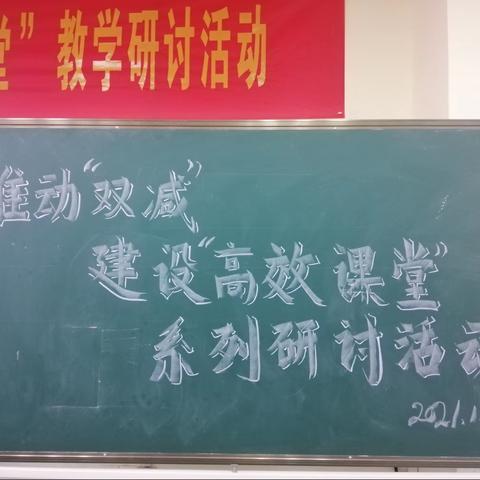 堂”教学研讨活动
推动“双减”
建设“高效课堂”
系列研讨活动
2021.1